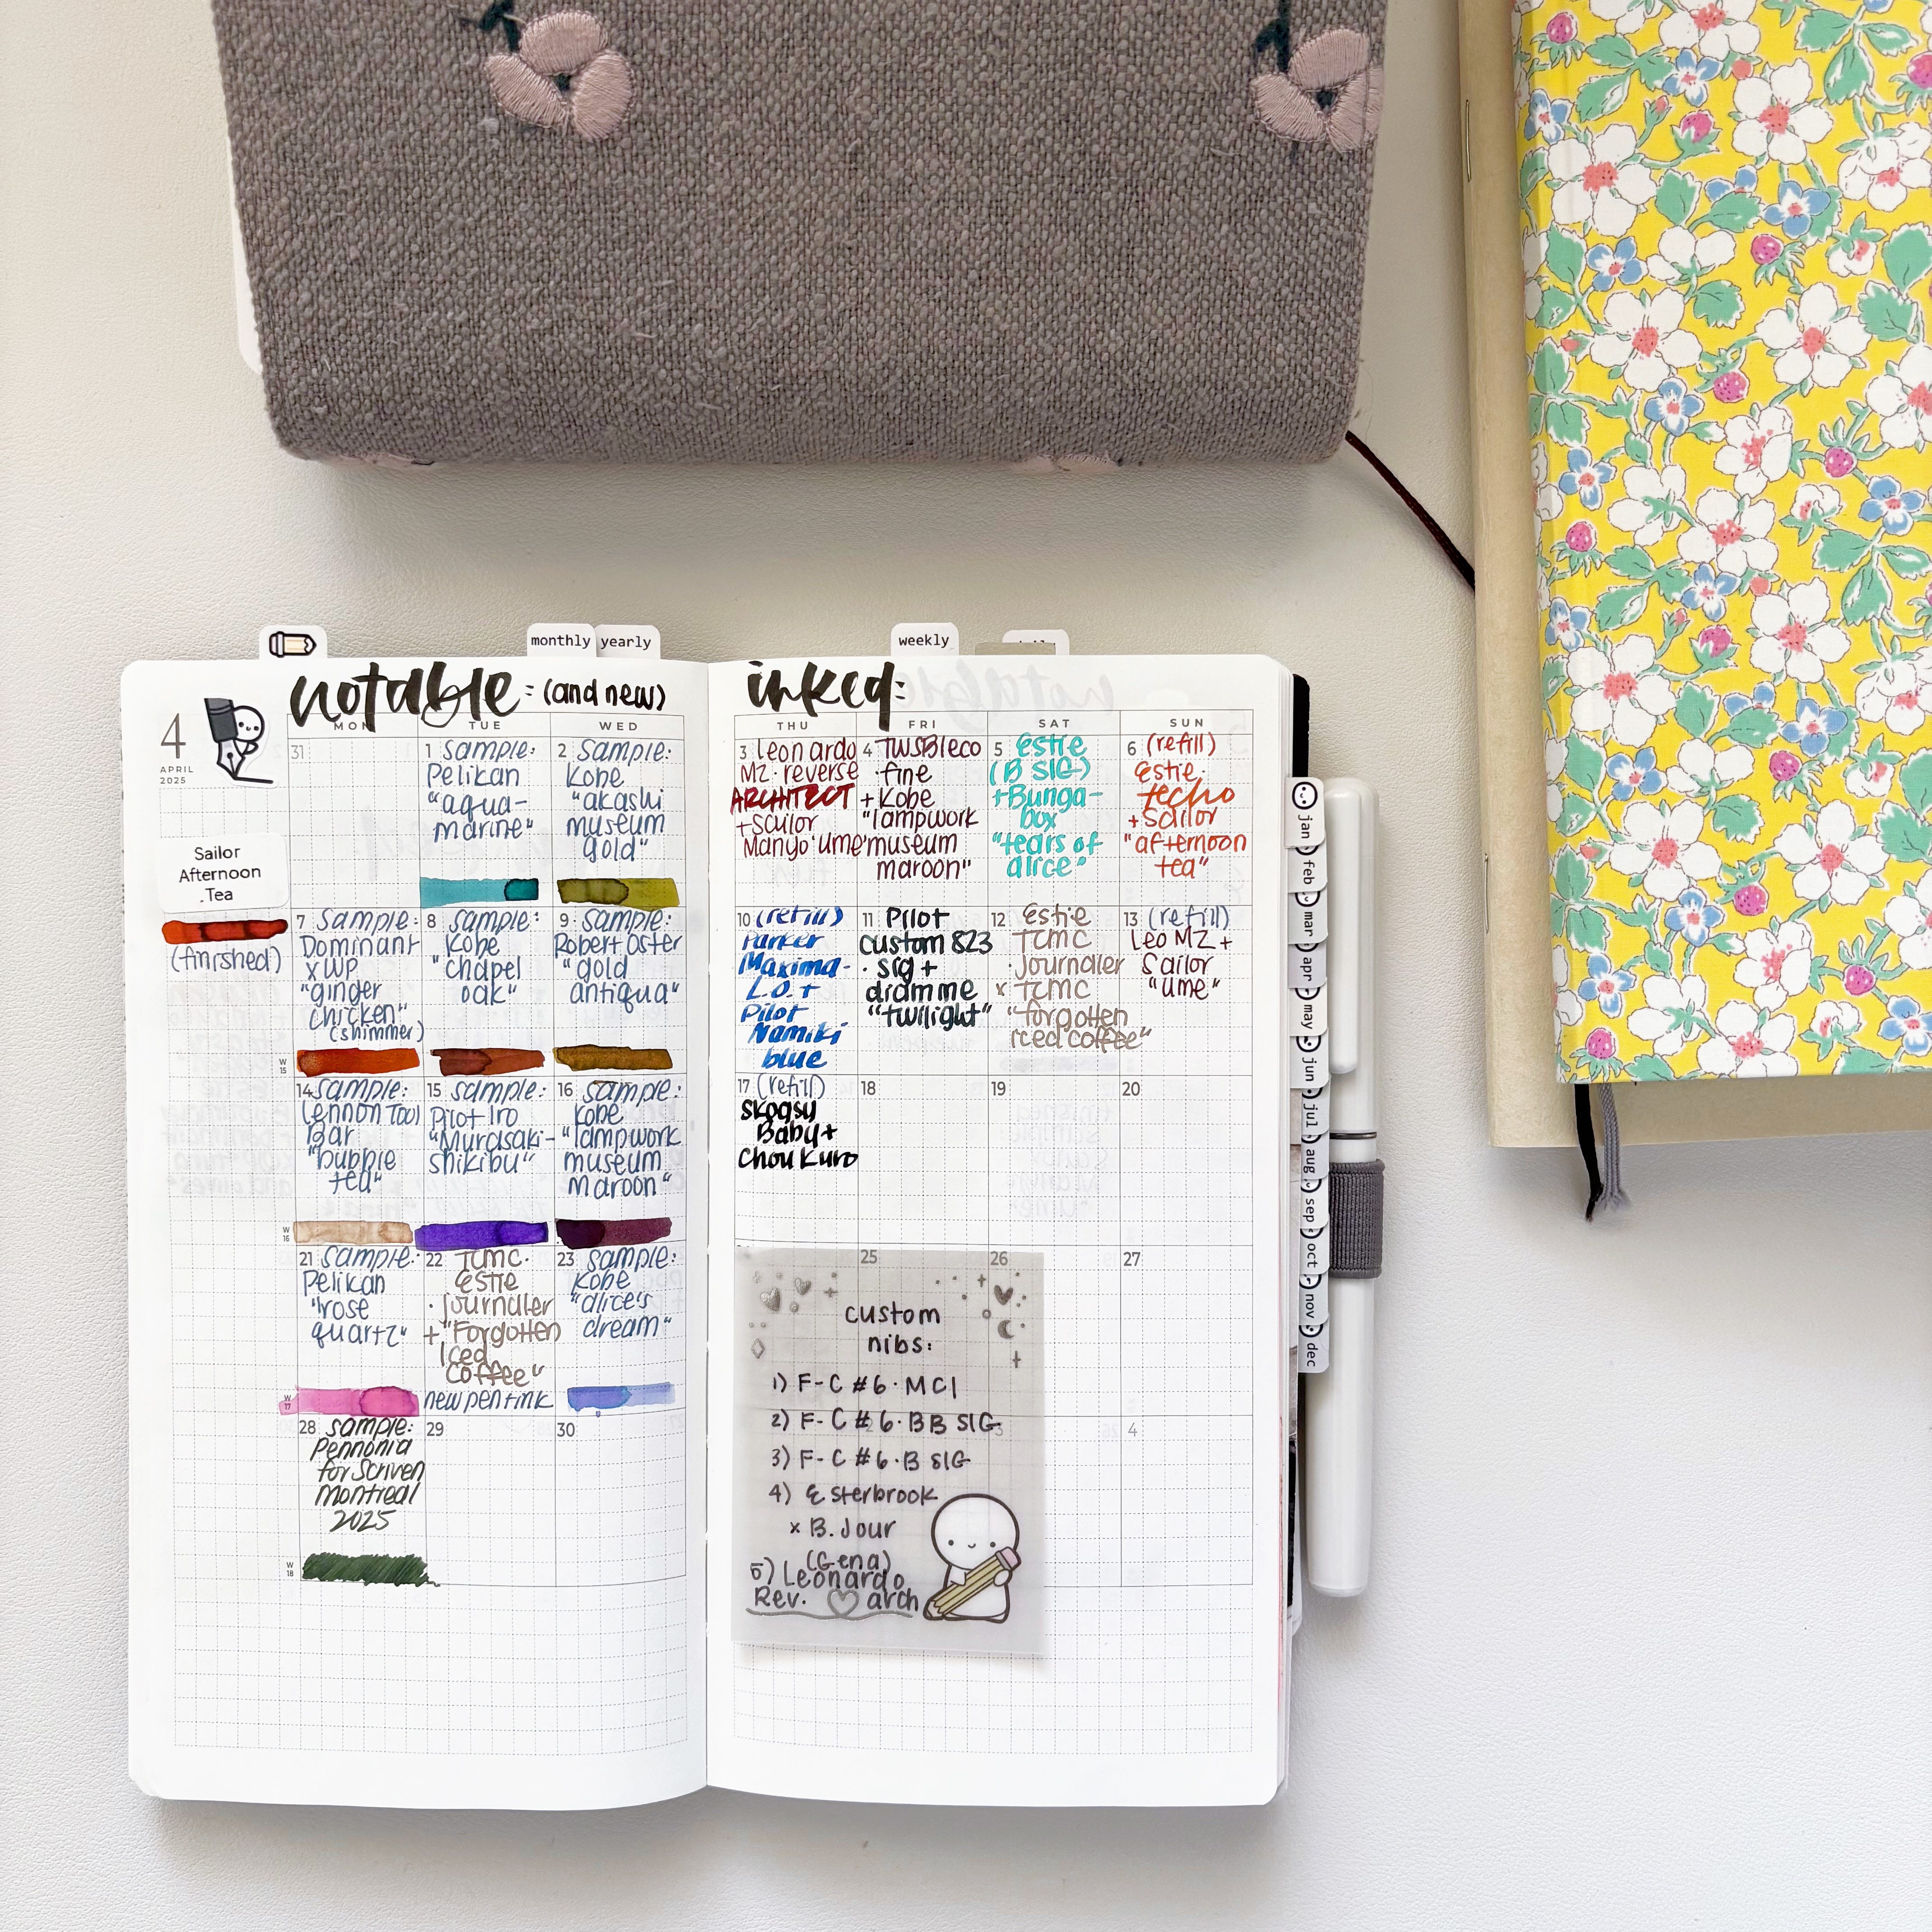 monthly
yearly
weekly
notable: (and new)
inked:
4
APRIL
2025
MON
TUE
WED
THU
FRI
SAT
SUN
Sailor
Afternoon
Tea
(finished)
31
1 sample:
Pelikan
"aqua-
marine"
2 sample:
Kobe
"akashi
museum
gold"
3 Leonardo
MZ. reverse
ARCHITECT
+ Sailor
Manyo 'Ume'
4 TWSBI eco
·fine
+ Kobe
"lampwork
museum
maroon"
5 Estie
(B SIG)
+Bunga-
box
"tears of
alice"
6 (refill)
Estie.
techo
+ Sailor
"afternoon
tea"
W
15
7 sample:
Dominant
x WP
"ginger
chicken"
(shimmer)
8 sample:
Kobe
"chapel
oak"
9 sample:
Robert Oster
"gold
antiqua"
10 (refill)
Parker
Maxima-
L.O. +
Pilot
Namiki
blue
11 Pilot
custom 823
· sig +
dramme
"twilight"
12 Estie
TCMC
·Journaler
x TCMC
"forgotten
iced coffee"
13 (refill)
Leo MZ +
Sailor
"ume"
W
16
14 sample:
Lennon Tool
Bar
"bubble
tea"
15 sample:
Pilot Iro
"Murasaki-
shikibu"
16 sample:
Kobe
"lampwork
museum
maroon"
17 (refill)
Skogsy
Baby +
Chou Kuro
18
19
20
W
17
21 sample:
Pelikan
"rose
quartz"
22 TCMC.
Estie
· journaler
+ "Forgotten
Iced
Coffee"
new pen + ink
23 sample:
Kobe
"alice's
dream"
25
26
27
W
18
28 sample:
Pennonia
for Scriven
Montreal
2025
29
30
3
4
custom
nibs:
1) F-C #6 · MCI
2) F-C #6 · BB SIG
3) F-C #6 · B SIG
4) Esterbrook
x B. Jour
(Gena)
5) Leonardo
Rev. arch
jan
feb
mar
apr
may
jun
jul
aug
sep
oct
nov
dec